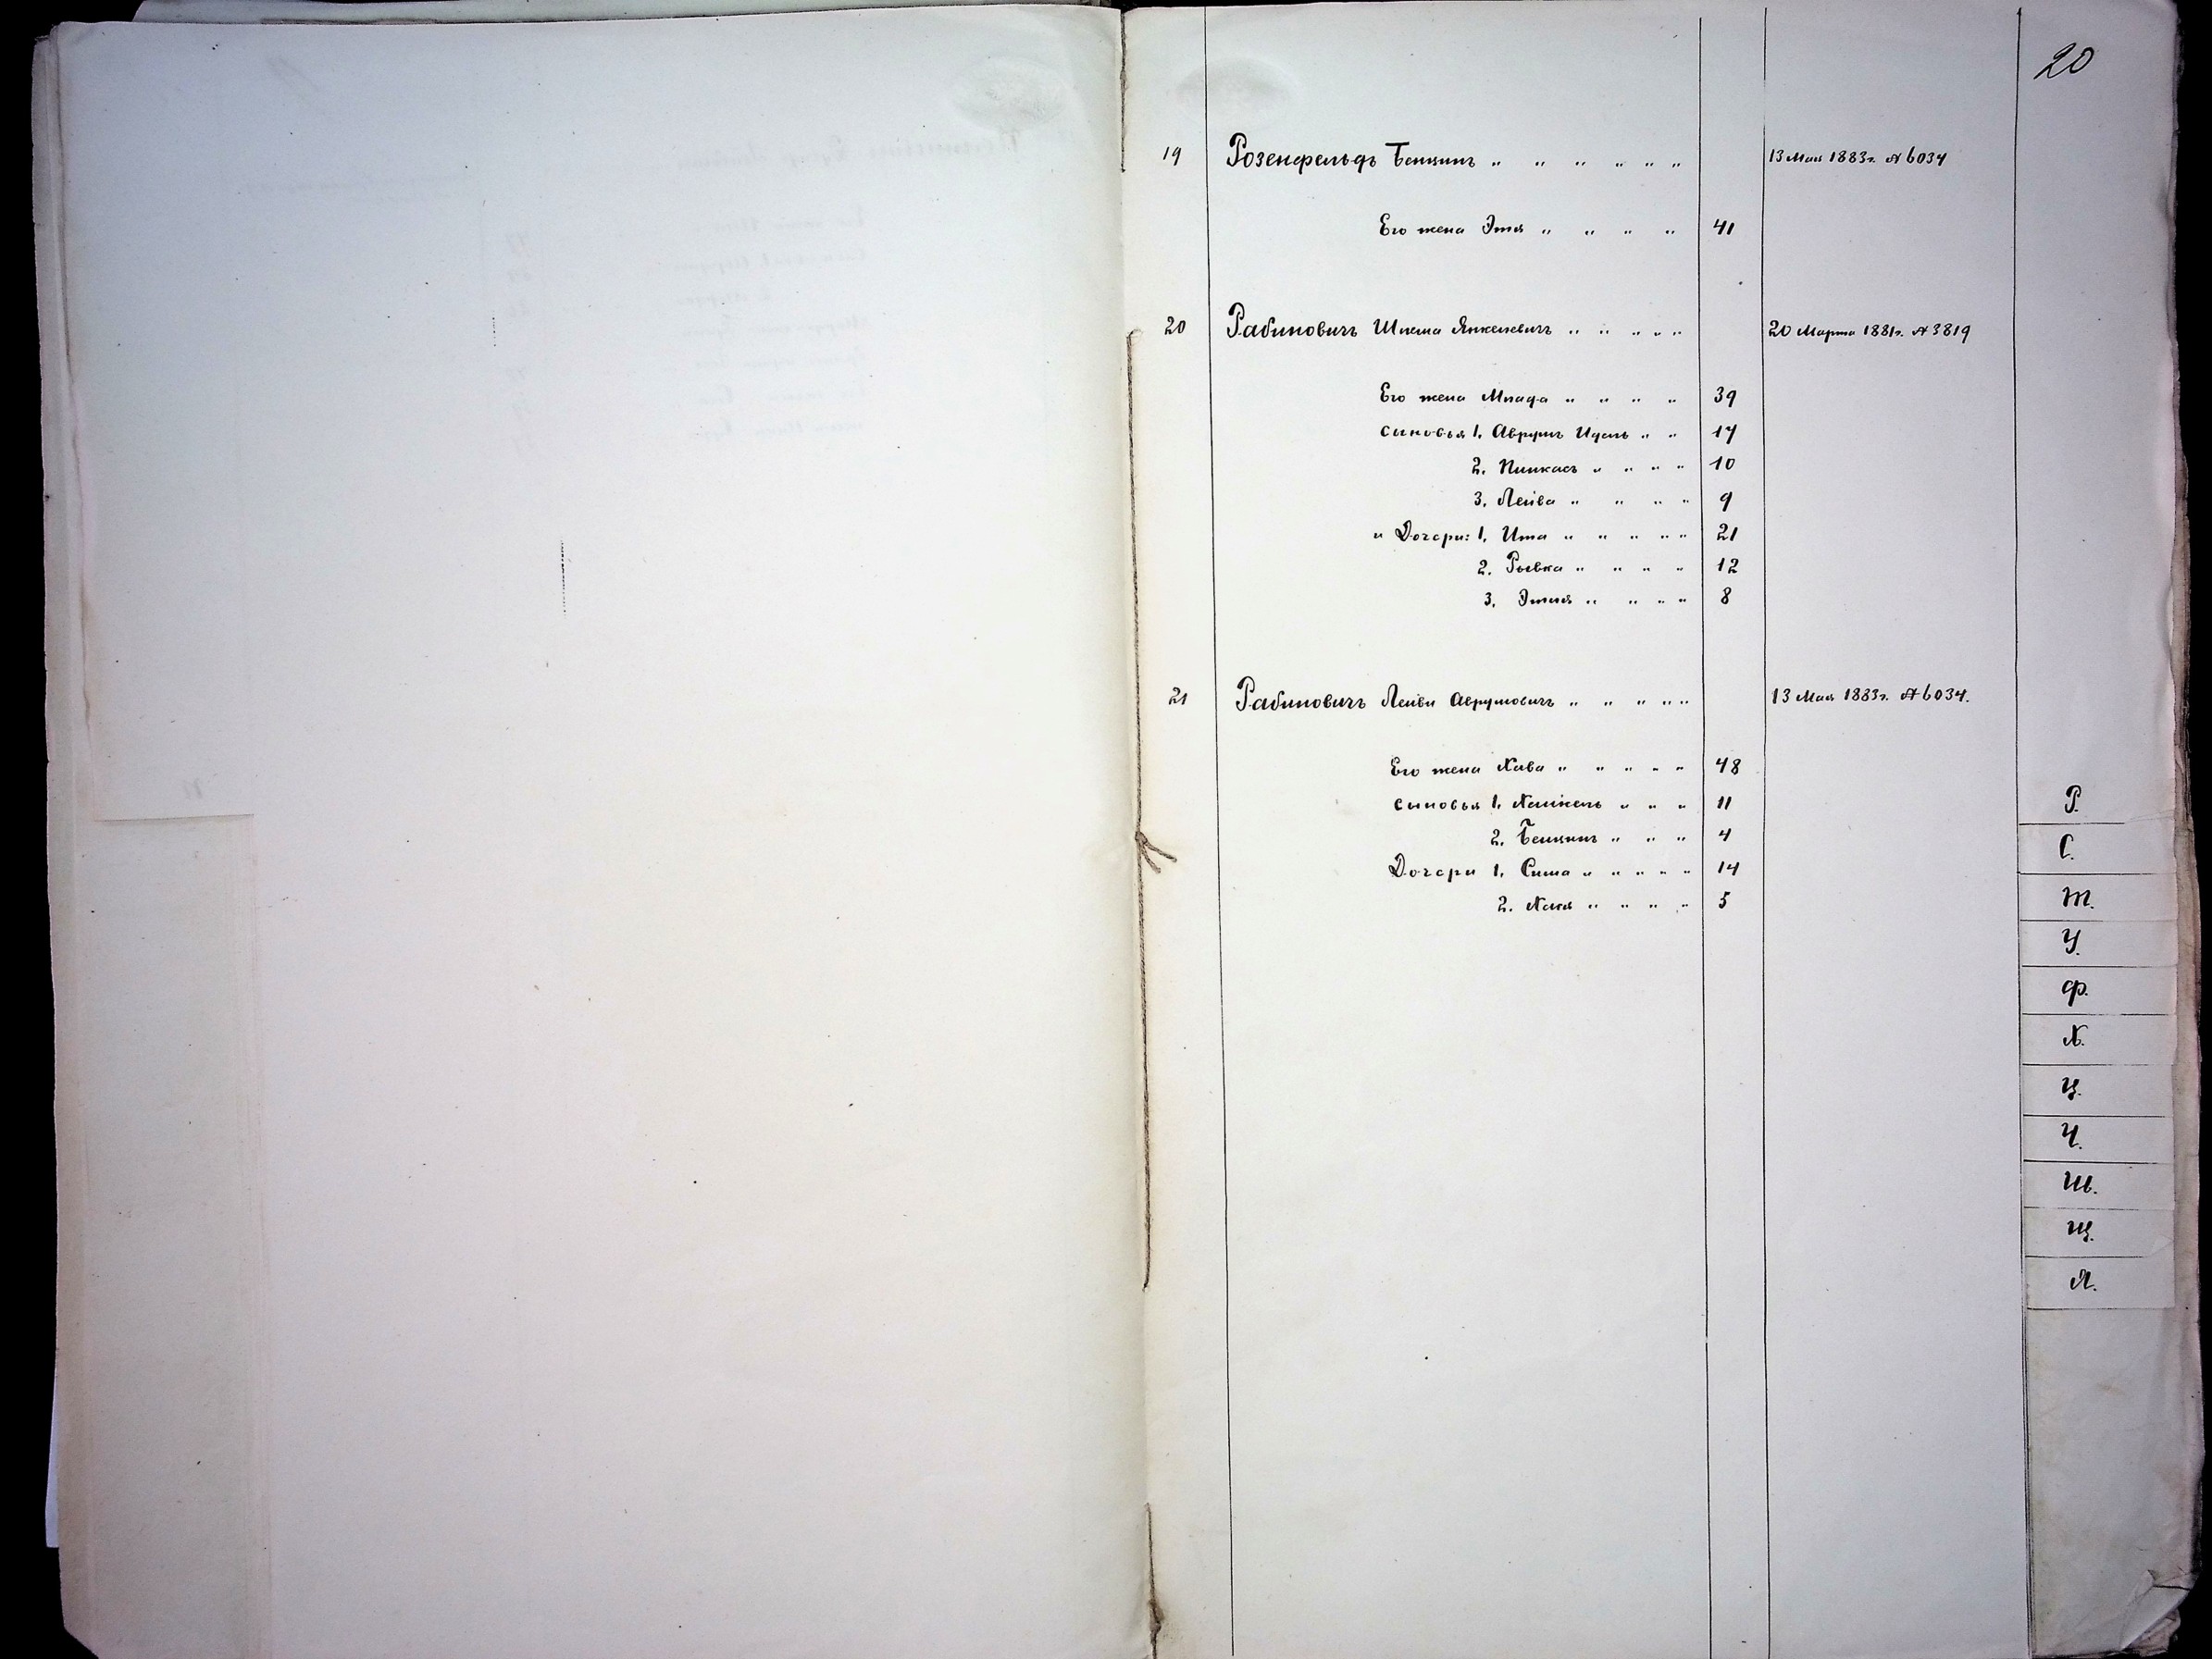 20
19 Розенфельдъ Бенцинъ " " " " " " 13 Мая 1883г. № 6034
Его жена Этя " " " " 41
20 Рабиновичъ Шлема Янкелевичъ " " " " " 20 Марта 1881г. № 3819
Его жена Млада " " " " 39
сыновья 1. Аврумъ Идель " " 14
2. Пинкасъ " " " " 10
3. Лейва " " " " 9
и Дочери: 1. Ита " " " " " 21
2. Рывка " " " " 12
3. " " " " 8
21 Рабиновичъ Лейви Аврумовичъ " " " " " 13 Мая 1883г. № 6034.
Его жена Хава " " " " " 48
сыновья 1. Хаикель " " " 11
2. Бенцинъ " " " 4
Дочери 1. Сима " " " " " 14
2. " " " " 5
Р.
С.
Т.
У.
Ф.
Х.
Ц.
Ч.
Ш.
Щ.
Я.